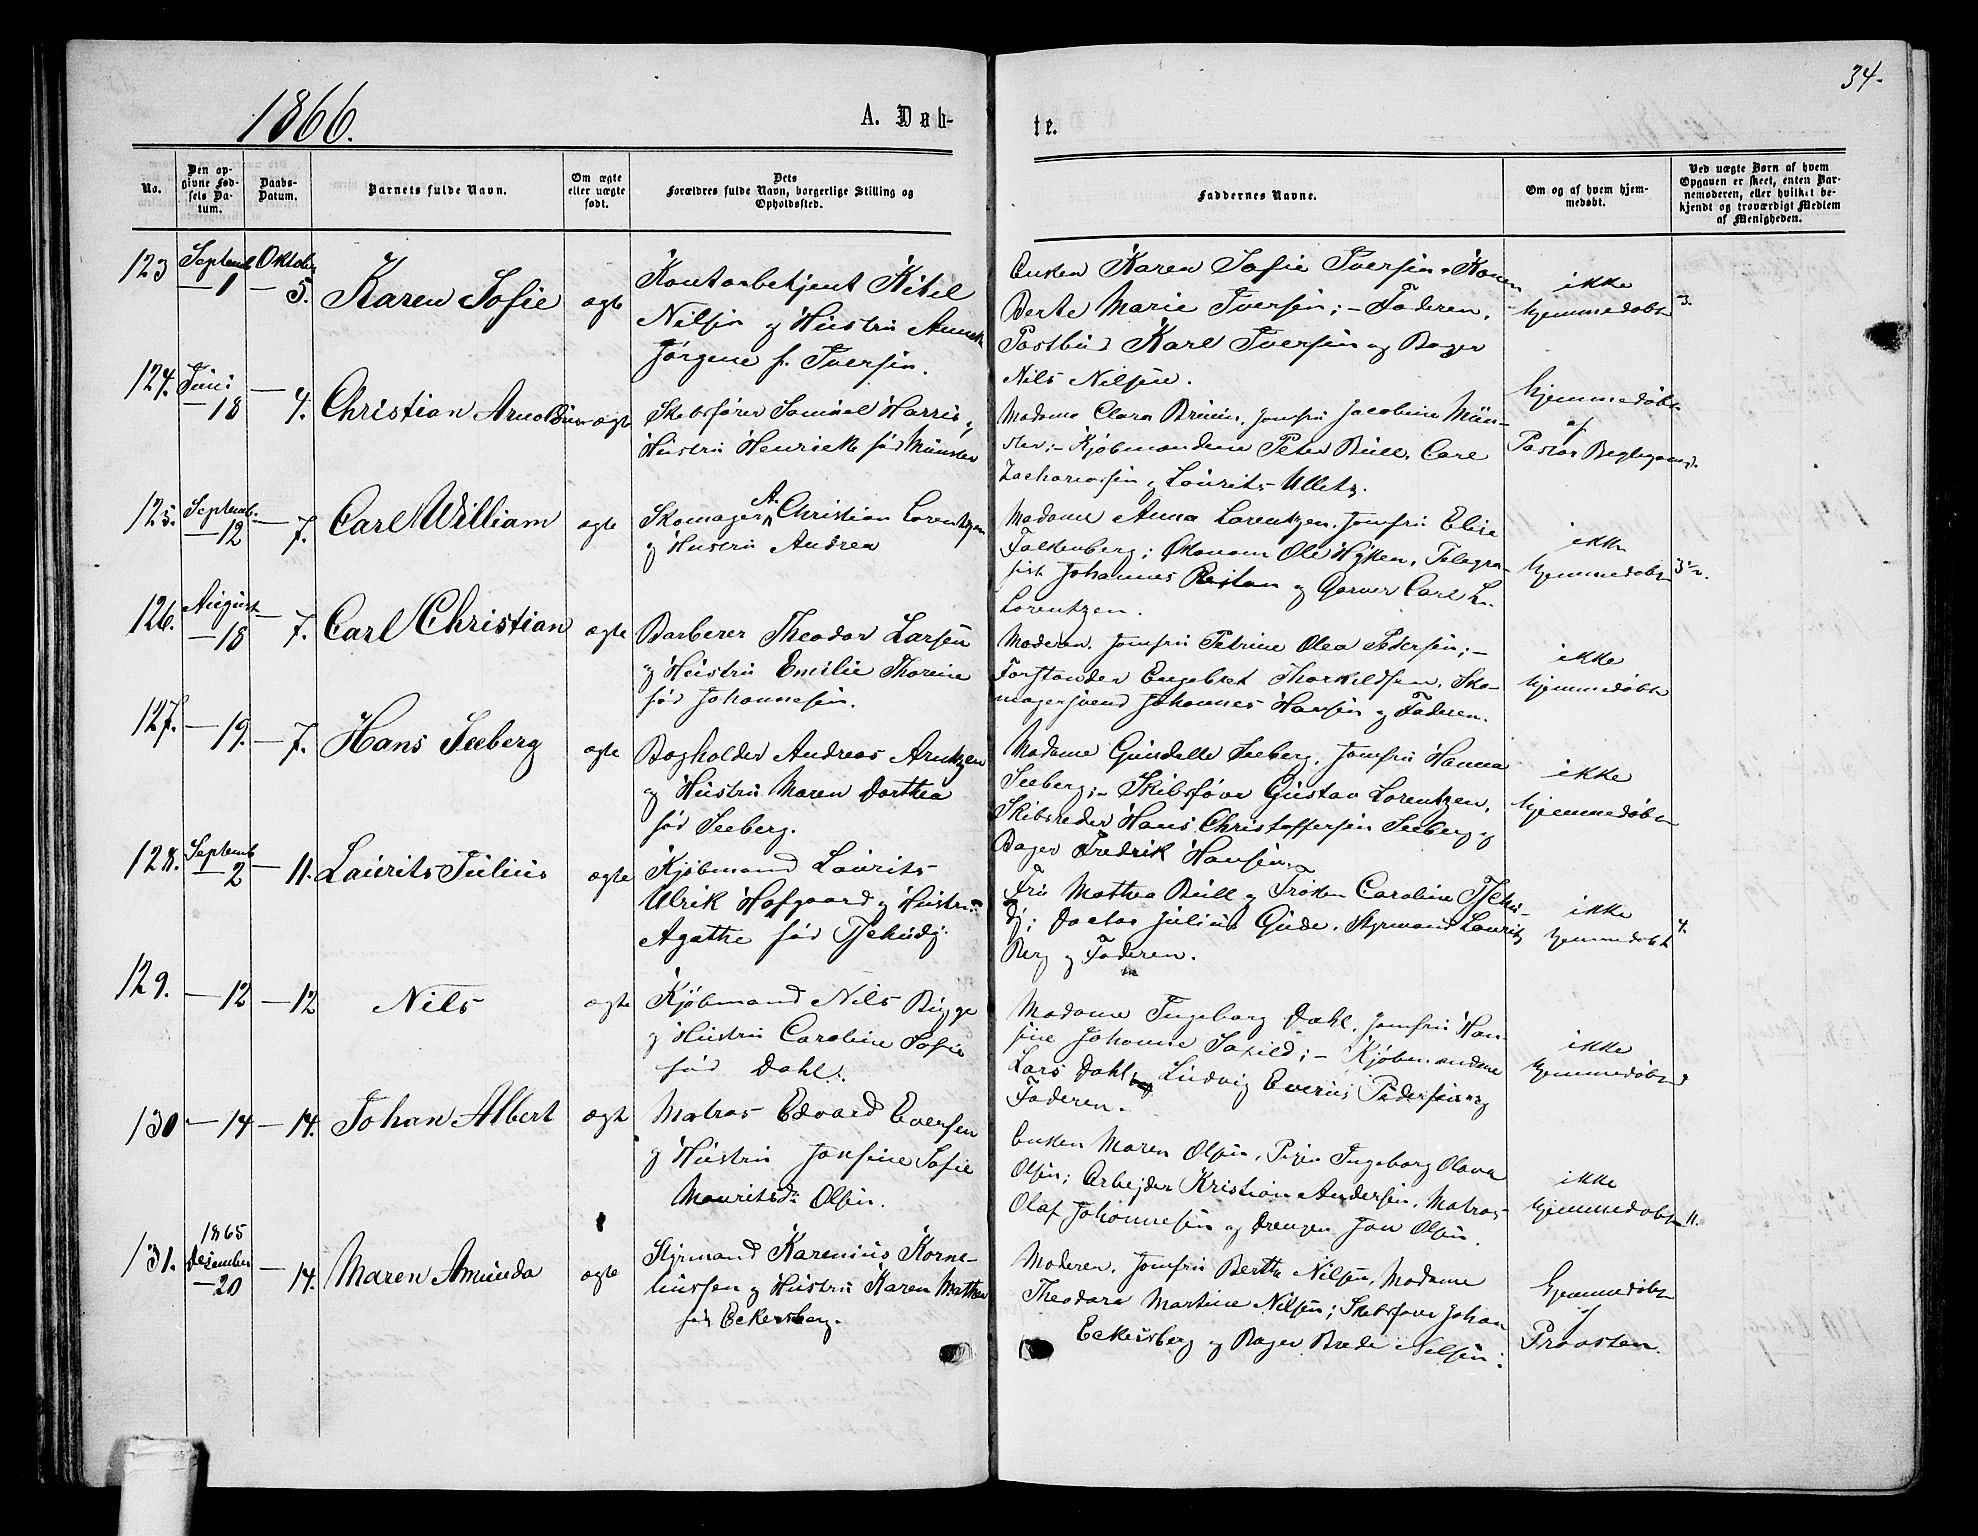 1866.
A. Døb-
te.
34.
No.
Den op-
givne Fød-
sels Da-
tum.
Daabs-
Datum.
Barnets fulde Navn.
Om ægte
eller uægte
født.
Dets
Forældres fulde Navn, borgerlige Stilling og
Opholdssted.
Faddernes Navne.
Om og af hvem hjem-
medøbt.
Ved uægte Børn af hvem
Opgaven er skeet, enten Bar-
nemoderen, eller hvilket be-
kjendt og troværdigt Medlem
af Menigheden.
123 Septemb Oktober
1 — 5. Karen Sofie ægte
Kontorbetjent Kitel
Nilsen og Hustru Anne
Jørgene f. Iversen.
Enken Karen Sofie Iversen, Konen
Berte Marie Iversen; – Faderen,
Postbud Karl Iversen og Bager
Nils Nilsen.
ikke
hjemmedøbt
3.
124. Juni
— 18 — 4. Christian Arnoldus ægte
Skibsfører Samuel Harris og
Hustru Henriette født Münster
Madame Clara Bruun, Jomfru Jacobine Mün-
ster; – Kjøbmændene Peter Bull, Carl
Zachariassen og Laurits Ulletz.
Hjemmedøbt
af
Pastor
125. Septemb.
— 12 — 7. Carl William ægte
Skomager A. Christian Lorentzen
og Hustru Andrea
Madame Anna Lorentzen, Jomfru Elise
Falkenberg; Økonom Ole Hyken, Telegra-
fist Johannes og Garver Carl L.
Lorentzen.
ikke
hjemmedøbt
3½.
126. August
— 18 — 7. Carl Christian ægte
Barberer Theodor Larsen
og Hustru Emilie Thorine
født Johannesen.
Moderen, Jomfru Petrine Olea Pedersen; –
Forstander Engebret Thorkildsen, Sko-
magersvend Johannes Hansen og Faderen.
ikke
hjemmedøbt
127. — 19. — 7. Hans Seeberg ægte
Bogholder Andreas Arntzen
og Hustru Maren Dorthea
født Seeberg.
Madame Gundelle Seeberg, Jomfru Hanna
Seeberg; – Skibsfører Gustav Lorentzen,
Skibsreder Hans Christoffersen Seeberg og
Bager Fredrik Hansen.
ikke
hjemmedøbt
128. Septemb
— 2 — 11. Laurits Julius ægte
Kjøbmand Laurits
Ulrik Hofgaard og Hustru
Agathe født Tschudj.
Fru Mathea Bull og Frøken Caroline Tschu-
dj; Doctor Julius Gude, Styrmand Lauritz
Berg og Faderen.
ikke
hjemmedøbt
4.
129. — 12 — 12 Nils ægte
Kjøbmand Nils Bugge
og Hustru Caroline Sofie
født Dahl.
Madame Ingeborg Dahl, Jomfru Han-
sine Johanne Saxild; – Kjøbmændene
Lars Dahl, Ludvig Everius Pedersen og
Faderen.
ikke
hjemmedøbt
130 — 14 — 14. Johan Albert ægte
Matros Edvard Eversen
og Hustru Josefine Sofie
Mouritsdr. Olsen.
Enken Maren Olsen, Pigen Ingeborg Olava
Olsen; Arbejder Kristian Andersen, Matros
Olaf Johannesen og Drengen Jan Olsen.
ikke
hjemmedøbt
11.
131. 1865
Dezember
— 20 — 14. Maren Amunda ægte
Styrmand Karenius Korne-
liussen og Hustru Karen Mathea
født Eckersberg.
Moderen, Jomfru Berthe Nilsen, Madame
Theodora Martine Nilsen; Skibsfører Johan
Eckersberg og Bager Brede Nilsen.
Hjemmedøbt
af
Provsten.